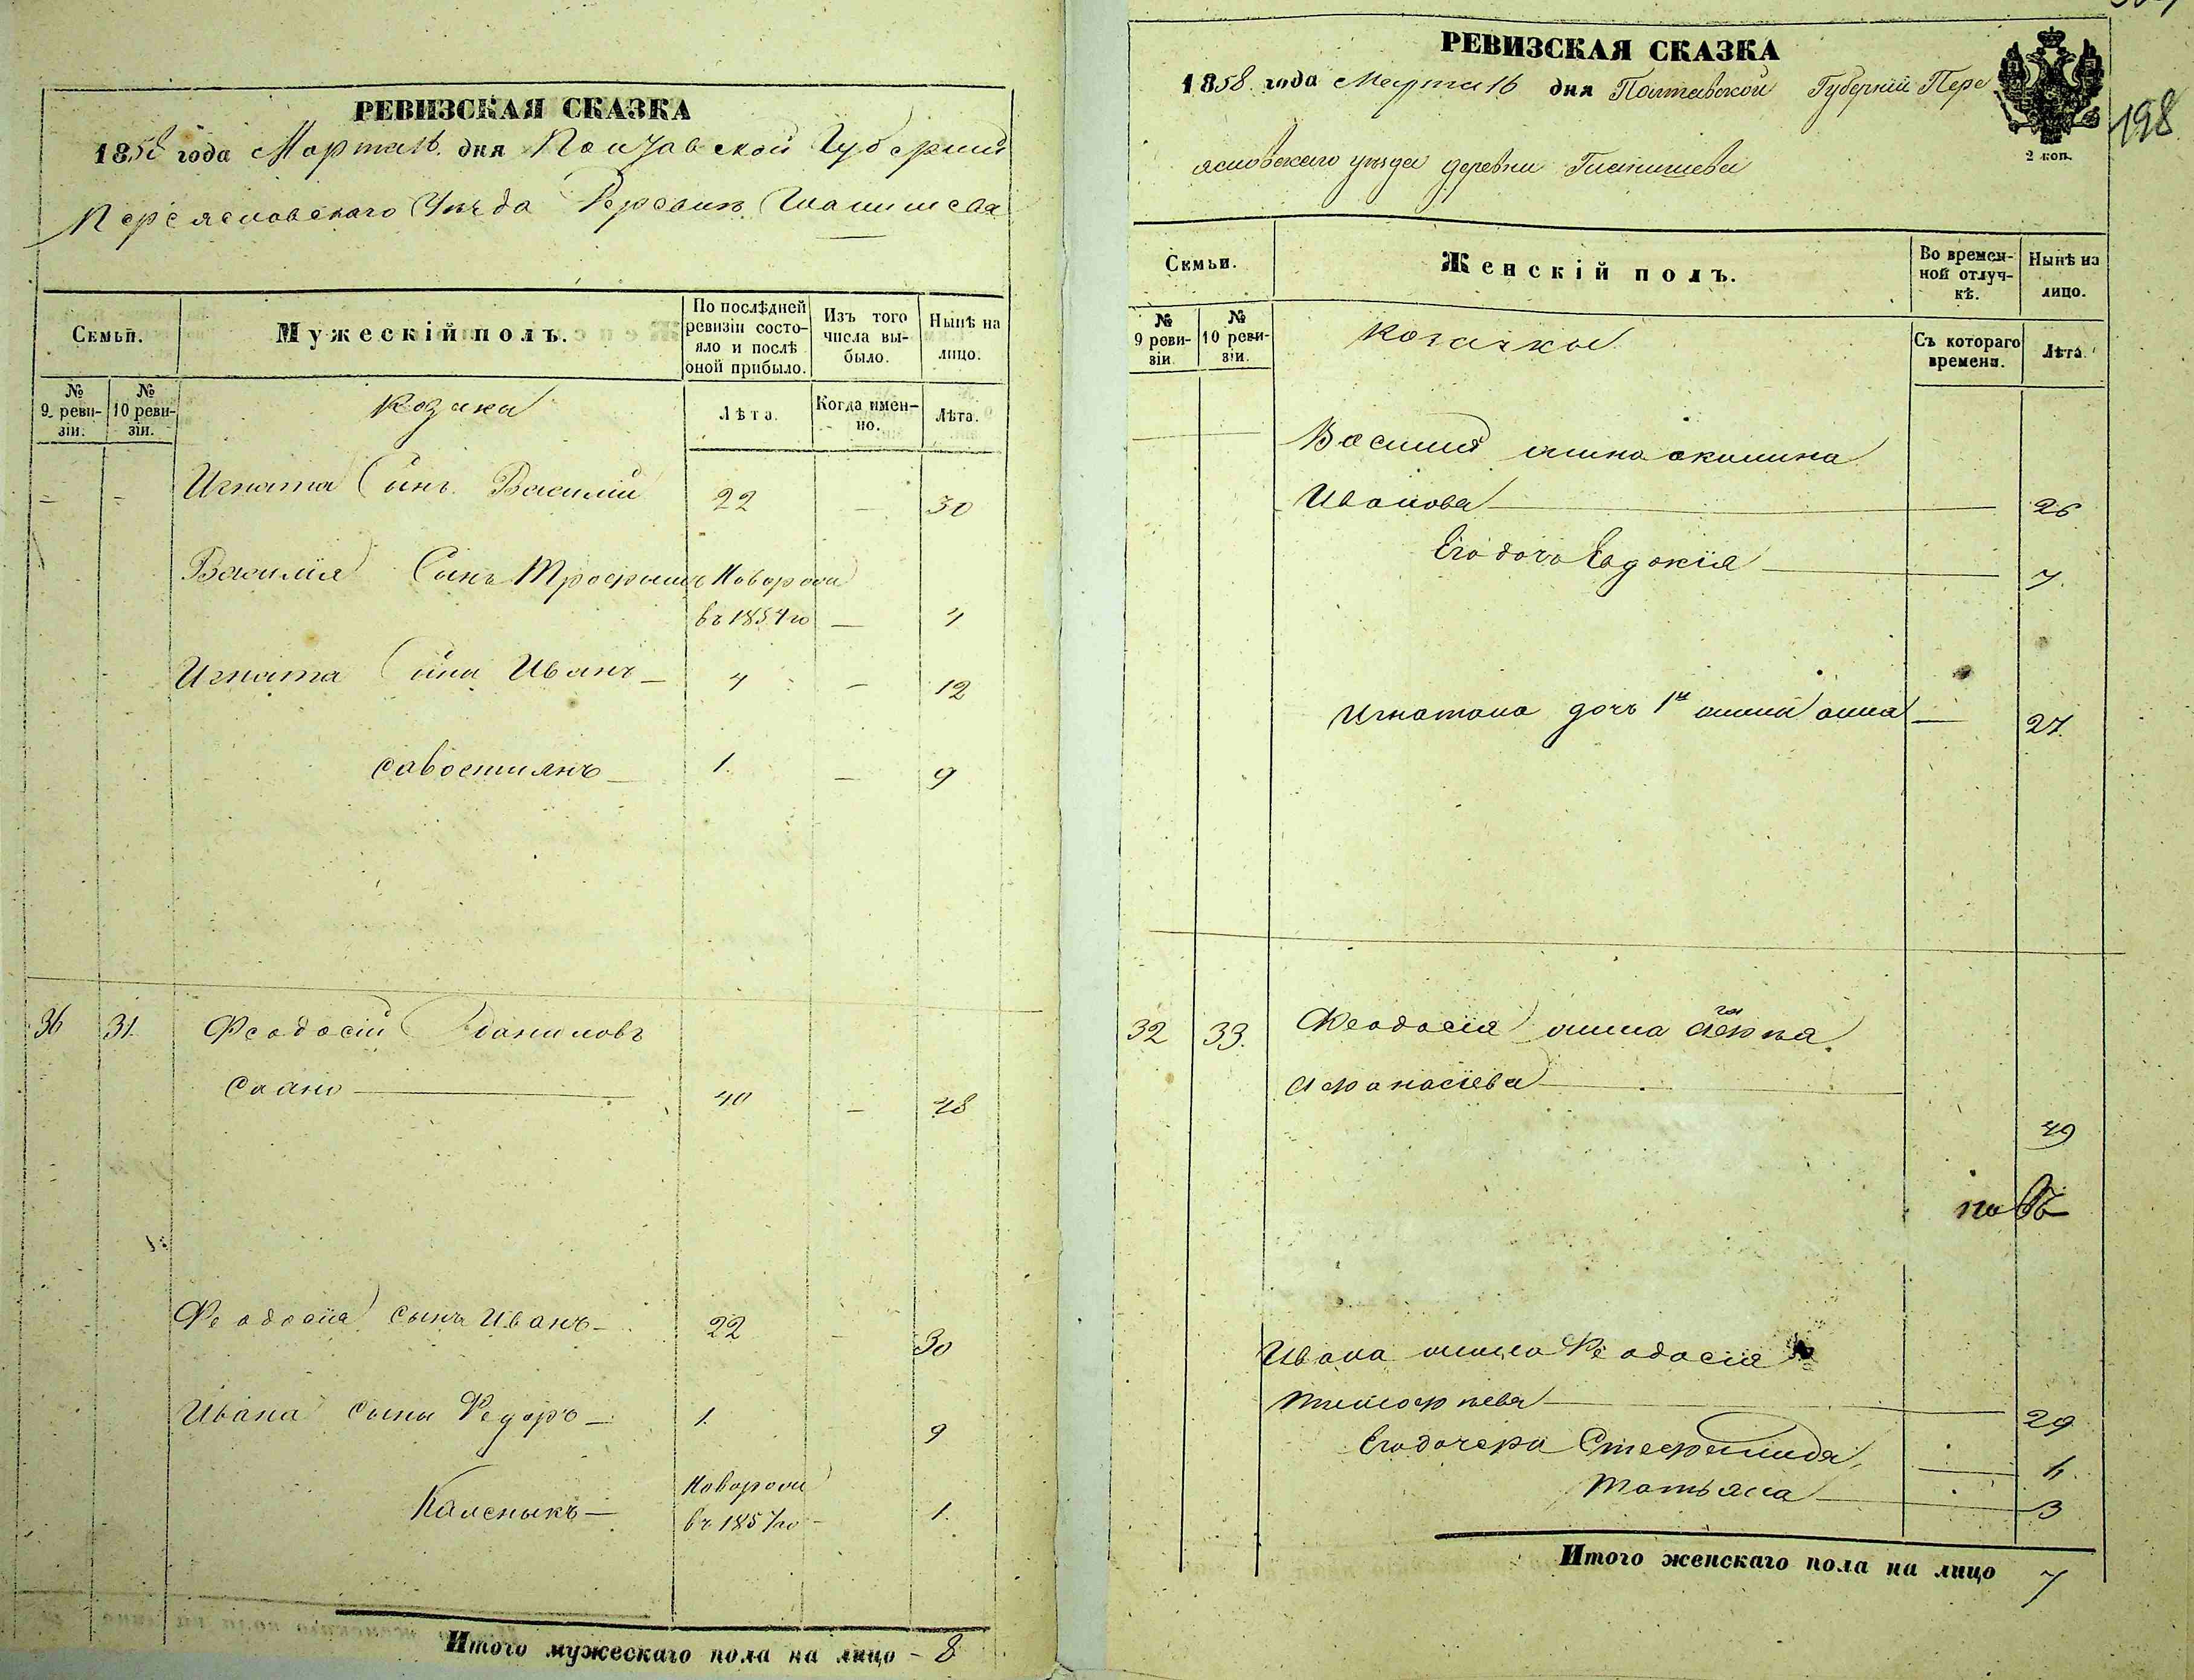 РЕВИЗСКАЯ СКАЗКА
1858 года Марта 16 дня Полтавской Губернии
Переясловскаго Уезда Деревни
Семьи.
Мужескій полъ.
По послѣдней ревизіи состояло и послѣ оной прибыло.
Изъ того числа выбыло.
Нынѣ на лицо.
№ 9 ревизіи.
№ 10 ревизіи.
Козаки
Лѣта.
Когда именно.
Лѣта.
Игната Сынъ Василій 22 — 30
Василія Сынъ ТрофимъНоворож
въ 1854 го — 4
Игната Сыни Иванъ — 4 — 12
савостиянъ — 1. — 9
36 31. Феодосій Даниловъ
40 — 48
Феодосія сынъ Иванъ — 22 — 30
Ивана сыны Федоръ — 1. 9
Новорож
Каленыкъ — въ 1857 го — 1.
Итого мужескаго пола на лицо — 8
РЕВИЗСКАЯ СКАЗКА
1858 года Марта 16 дня Полтавской Губерніи Пере
ясловскаго уезда деревни
2 коп.
198
Семьи.
Женскій полъ.
Во временной отлучкѣ.
Нынѣ на лицо.
№ 9 ревизіи.
№ 10 ревизіи.
Козачки
Съ котораго времени.
Лѣта.
Василия жина акилина
Иванова — 26
Его дочь Евдокія — 7.
Игнатова дочь 1й жины анна — 27.
32 33. Феодосія жина
афанасіева —
49
Ивана жина Феодосія
тимофѣева — 29
Его дочери Стефанида — 6.
Татьяна — 3
Итого женскаго пола на лицо 7